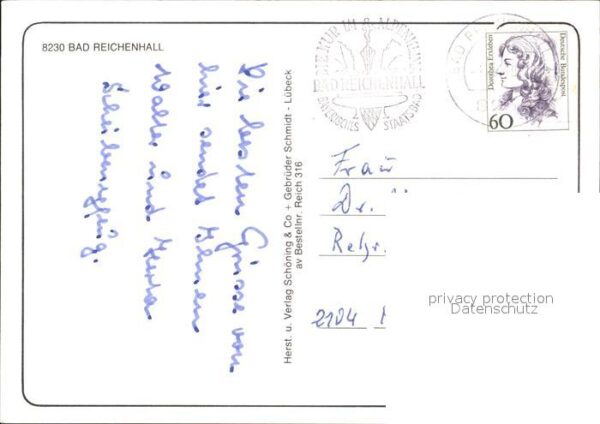 8230 BAD REICHENHALL
Die besten Grüsse von
hier sendet Ihnen
Walter und Herta
Herst. u. Verlag Schöning & Co + Gebrüder Schmidt - Lübeck
av Bestellnr. Reich 316
DIE KUR IM
BAD REICHENHALL
BAYERISCHES STAATSBAD
BAD
Dorothea Erxleben
Deutsche Bundespost
60
Frau
Dr.
2104
privacy protection
Datenschutz